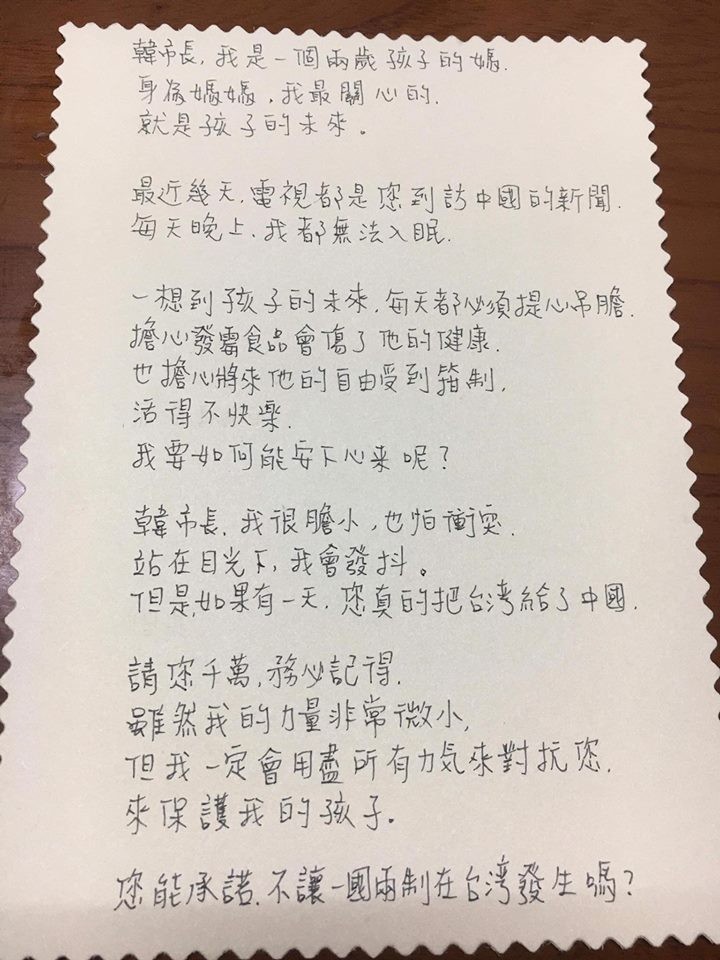 韓市長,我是一個兩歲孩子的媽.
身為媽媽,我最關心的.
就是孩子的未來。
最近幾天,電視都是您到訪中國的新聞.
每天晚上,我都無法入眠.
一想到孩子的未來,每天都必須提心吊膽.
擔心發霉食品會傷了他的健康.
也擔心將來他的自由受到箝制,
活得不快樂.
我要如何能安下心来呢?
韓市長.我很膽小,也怕衝突.
站在目光下,我會發抖。
但是,如果有一天,您真的把台灣給了中國.
請您千萬,務必記得.
雖然我的力量非常微小,
但我一定會用盡所有力氣來對抗您.
來保護我的孩子。
您能承諾.不讓一國兩制在台灣發生嗎?